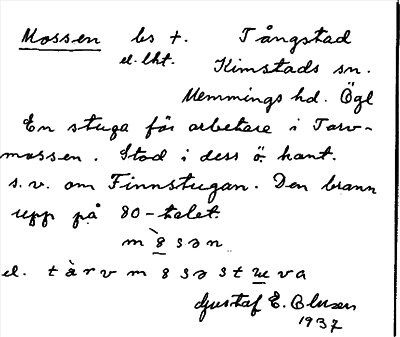 Mossen bs †. Tångstad
el. lht. Kimstads sn.
Memmings hd. Ögl
En stuga för arbetare i Torv-
mossen. Stod i dess ö. kant.
s.v. om Finnstugan. Den brann
upp på 80-talet.
m ò̱ s ə n
el. t à r v m o s ə s t u̱ v a
Gustaf E. Olsson
1937